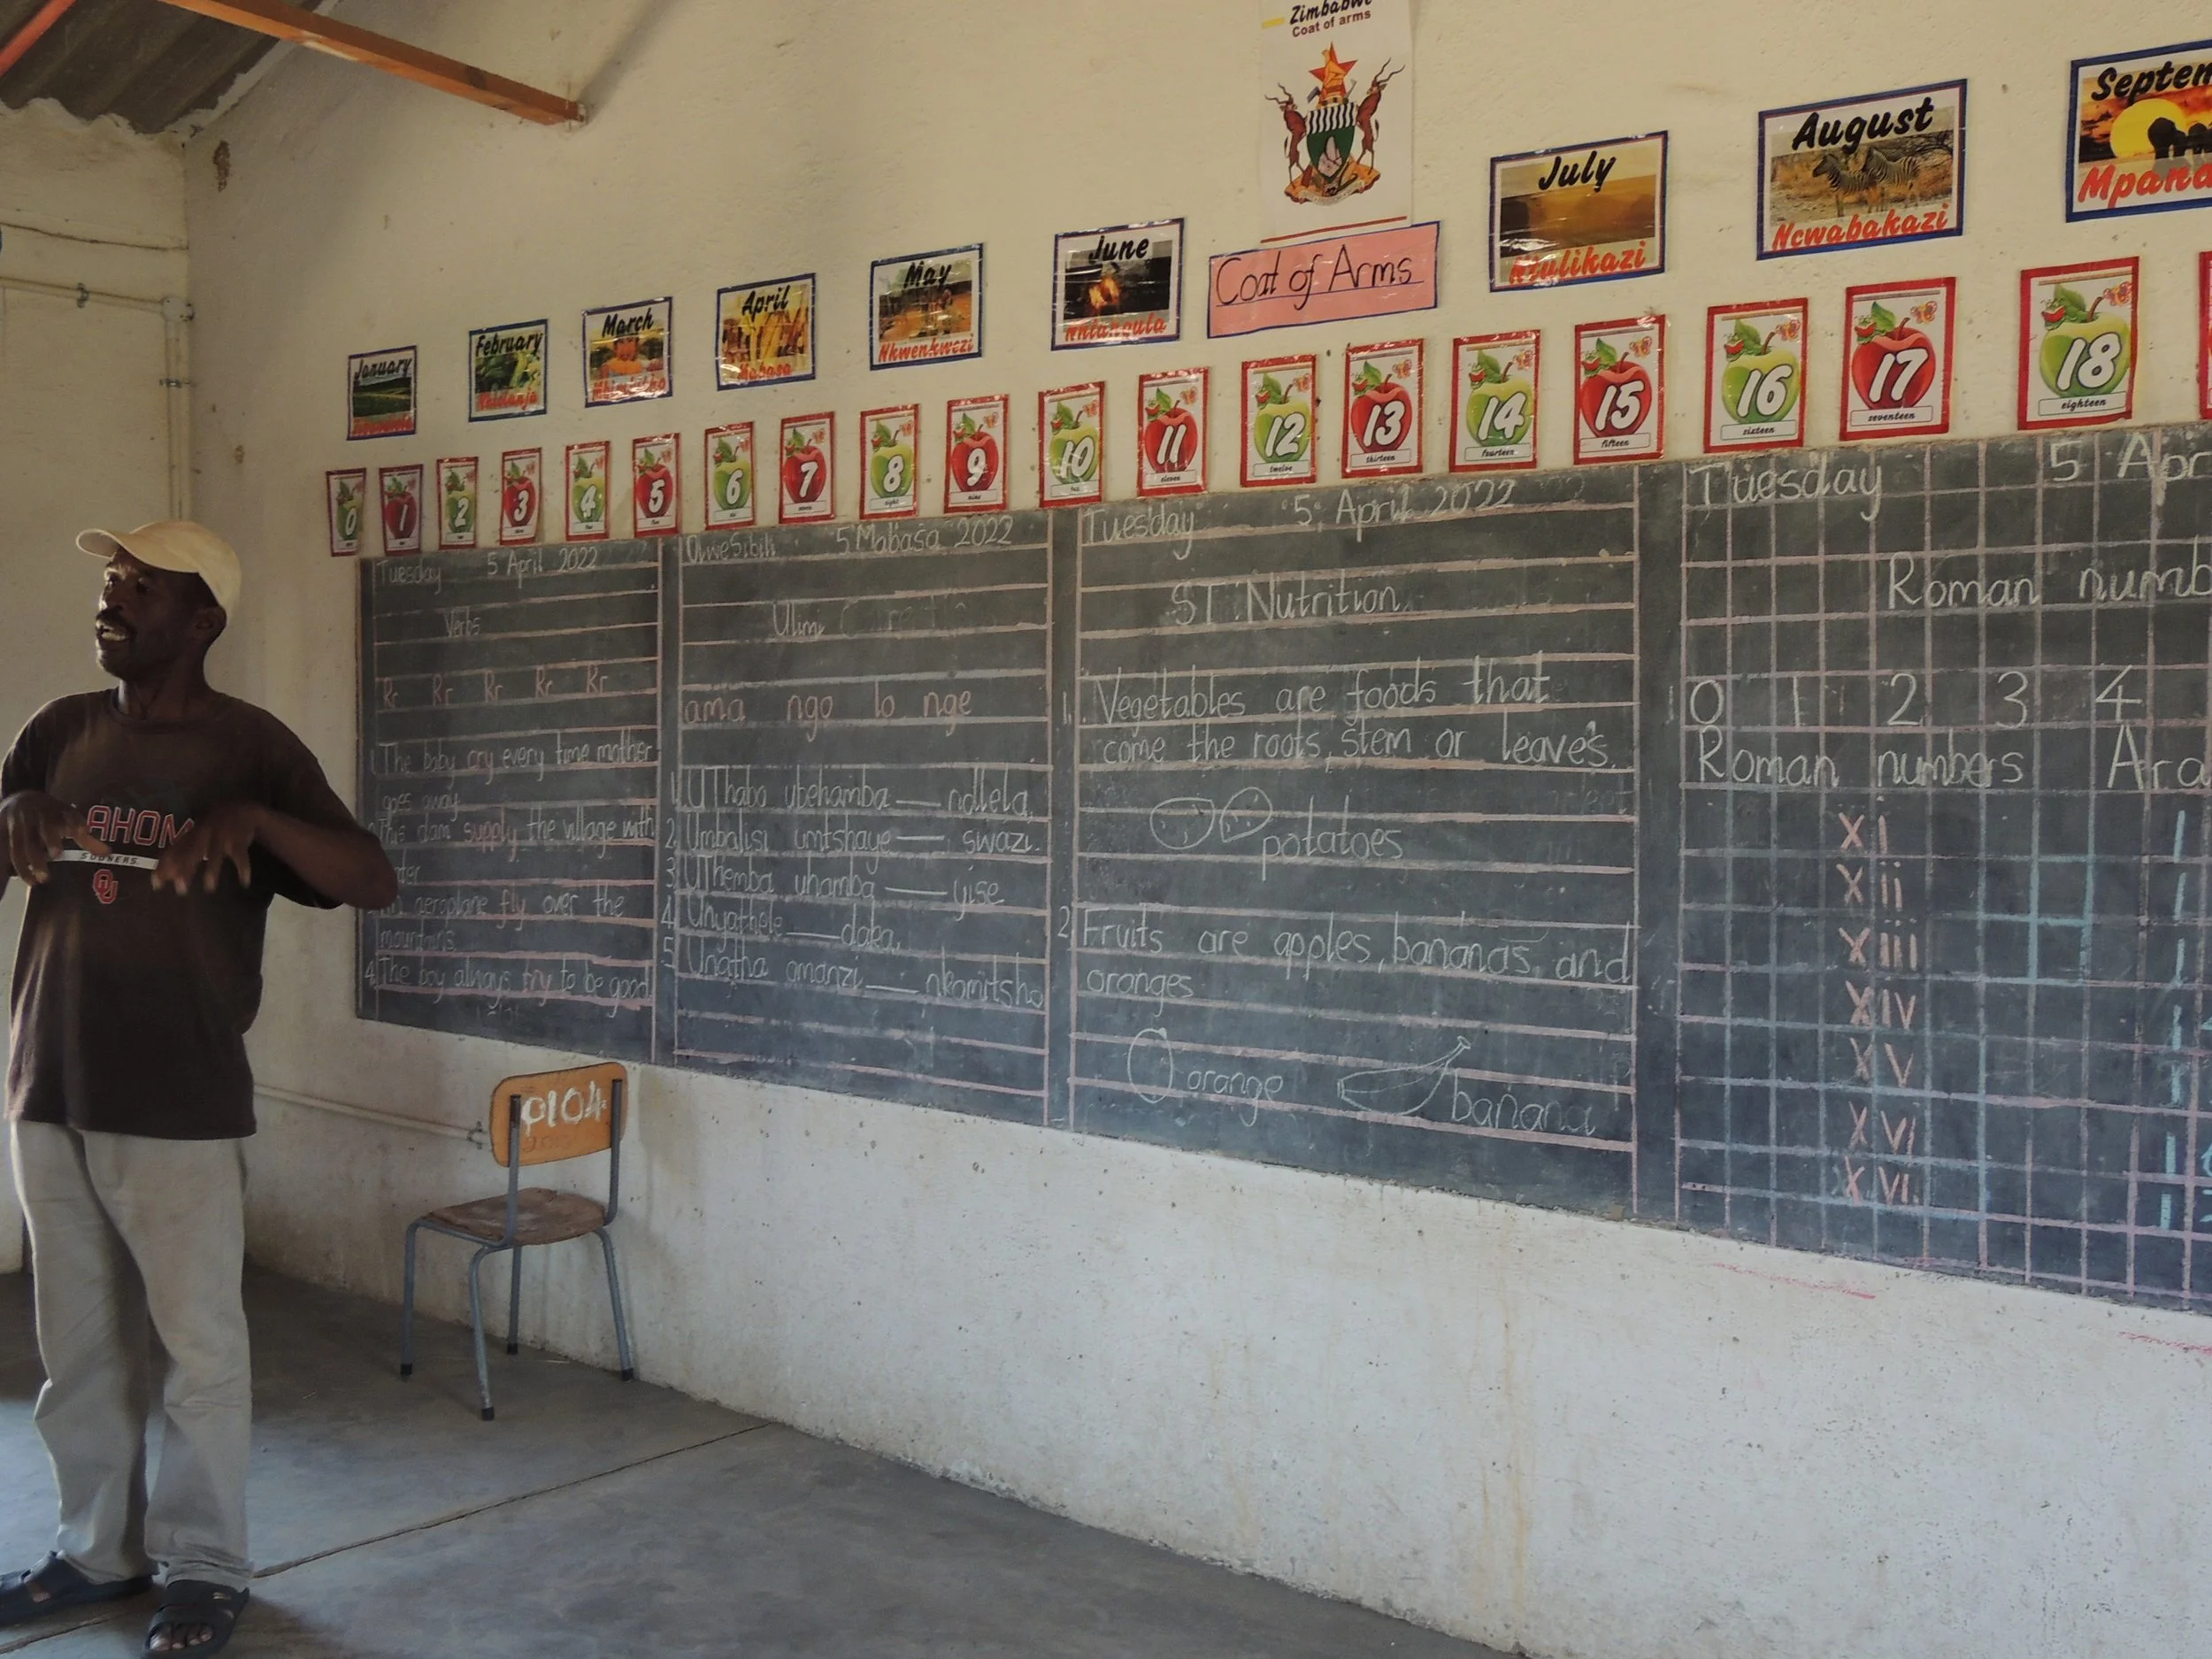 Zimbabwe
Coat of arms
January
February
March
April
Mabasa
May
Nkwenkwezi
June
Nhlangula
Coat of Arms
July
Ntulikazi
August
Ncwabakazi
Septem
Mpand
0
1
2
3
4
5
6
7
8
eight
9
nine
10
ten
11
eleven
12
twelve
13
thirteen
14
fourteen
15
fifteen
16
sixteen
17
seventeen
18
eighteen
Tuesday 5 April 2022
Verbs
Rr Rr Rr Rr Rr
1 The baby cry every time mother
goes away
This dam supply the village with
ter
aeroplane fly over the
mountains
4 The boy always try to be good
QweSibili 5 Mabasa 2022
Ulimi
ama ngo lo nge
1 UThabo ubehamba ___ ndlela.
2 Umbalisi umtshaye ___ swazi.
3 UThemba uhamba ___ yise
4 Unyathele ___ daka.
5 Unatha amanzi ___ nkomitsho
Tuesday 5 April 2022
ST Nutrition
1. Vegetables are foods that
come the roots, stem or leaves.
potatoes
2 Fruits are apples, bananas and
oranges
orange banana
Tuesday 5 Apr
Roman numb
0 1 2 3 4
Roman numbers Ara
xi 1
xii 1
xiii 1
xiv 1
xv 1
xvi 1
xvi 1
AHOM
SOONERS
OU
P104